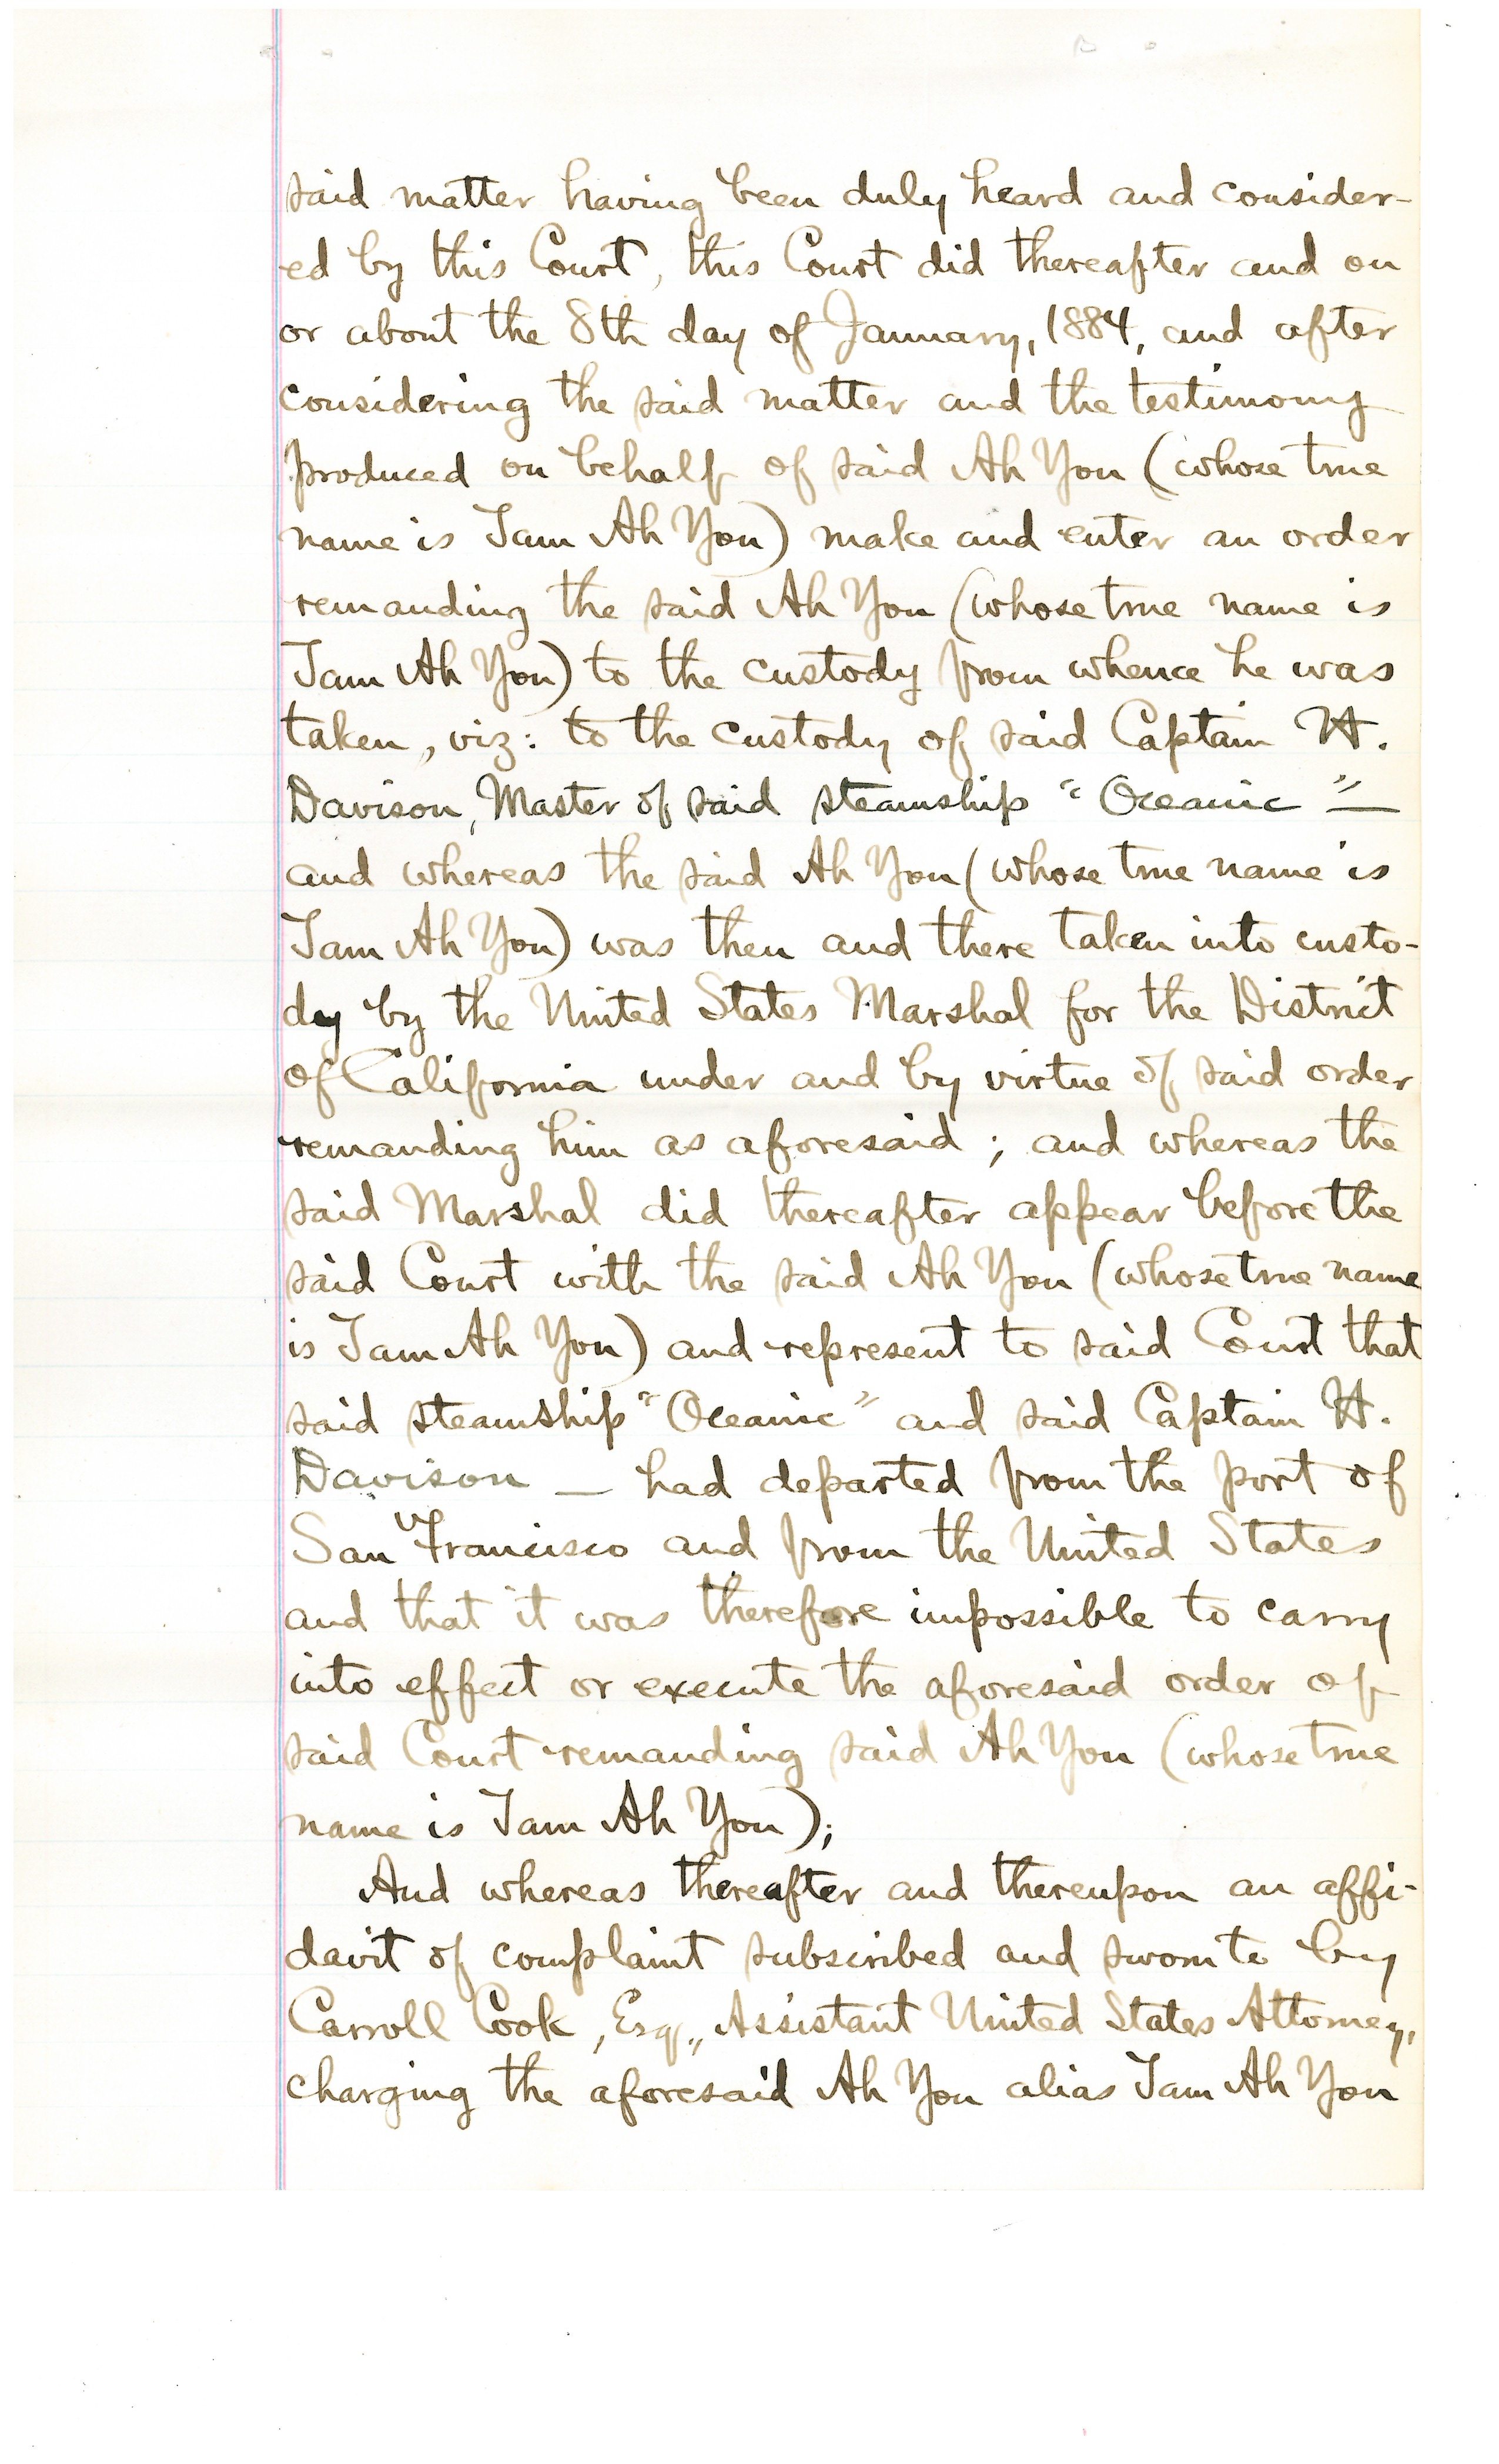 said matter having been duly heard and consider-
ed by this Court, this Court did thereafter and on
or about the 8th day of January, 1884, and after
considering the said matter and the testimony
produced on behalf of said Ah You (whose true
name is Tam Ah You) make and enter an order
remanding the said Ah You (whose true name is
Tam Ah You) to the custody from whence he was
taken, viz: to the custody of said Captain H.
Davison, Master of said steamship "Oceanic" —
and whereas the said Ah You (whose true name is
Tam Ah You) was then and there taken into custo-
dy by the United States Marshal for the District
of California under and by virtue of said order
remanding him as aforesaid; and whereas the
said Marshal did thereafter appear before the
said Court with the said Ah You (whose true name
is Tam Ah You) and represent to said Court that
said steamship "Oceanic" and said Captain H.
Davison — had departed from the port of
San Francisco and from the United States
and that it was therefore impossible to carry
into effect or execute the aforesaid order of
said Court remanding said Ah You (whose true
name is Tam Ah You);
And whereas thereafter and thereupon an affi-
davit of complaint subscribed and sworn to by
Carroll Cook, Esq., Assistant United States Attorney,
charging the aforesaid Ah You alias Tam Ah You